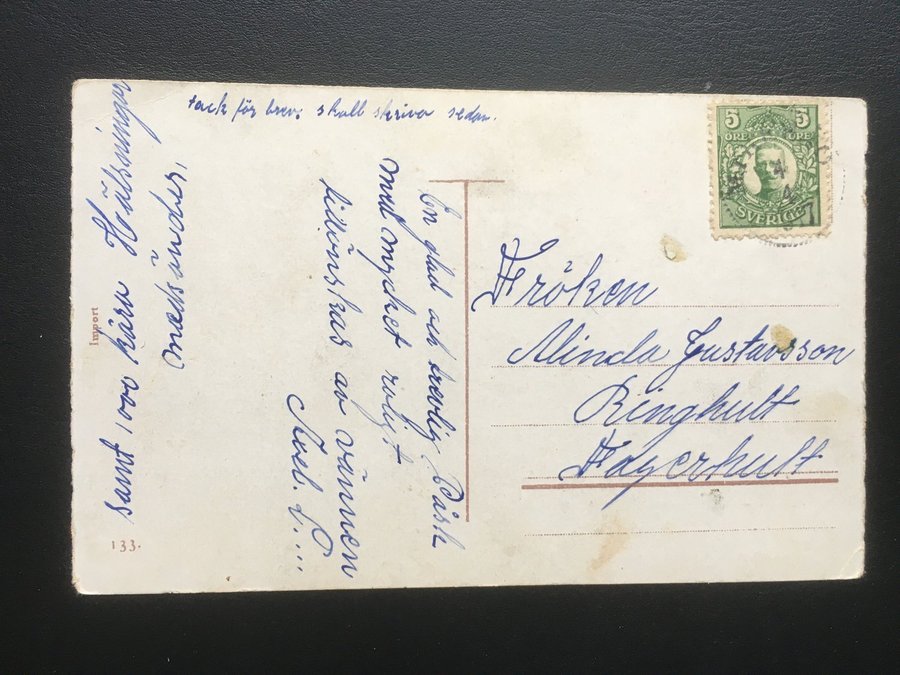 tack för brev. skall skriva sedan.
En glad och trevlig Påsk
med mycket roligt
tillönskas av vännen
samt 1000 kära Hälsningar
medsändes.
Fröken
Alinda Gustavsson
Ringhult
Fagerhult
5 5
ÖRE ÖRE
SVERIGE
4
4
Import
133.